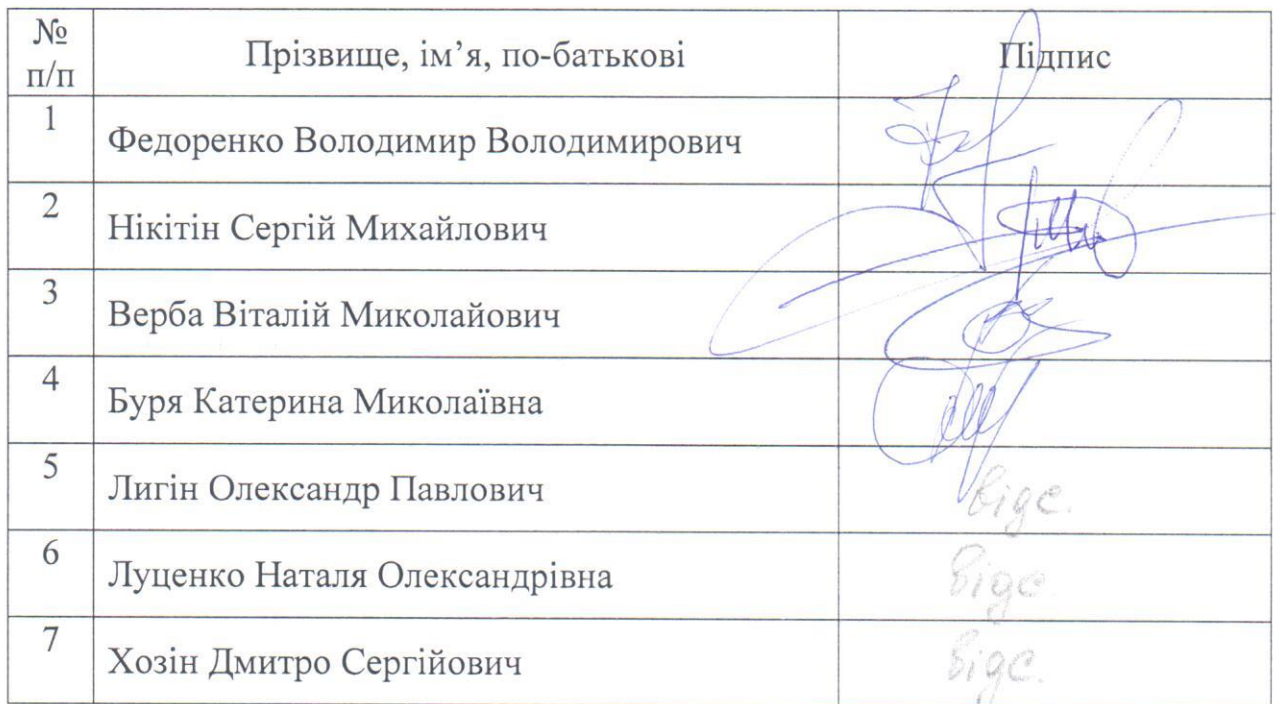 № п/п Прізвище, ім’я, по-батькові Підпис
1 Федоренко Володимир Володимирович
2 Нікітін Сергій Михайлович
3 Верба Віталій Миколайович
4 Буря Катерина Миколаївна
5 Лигін Олександр Павлович відс.
6 Луценко Наталя Олександрівна відс.
7 Хозін Дмитро Сергійович відс.